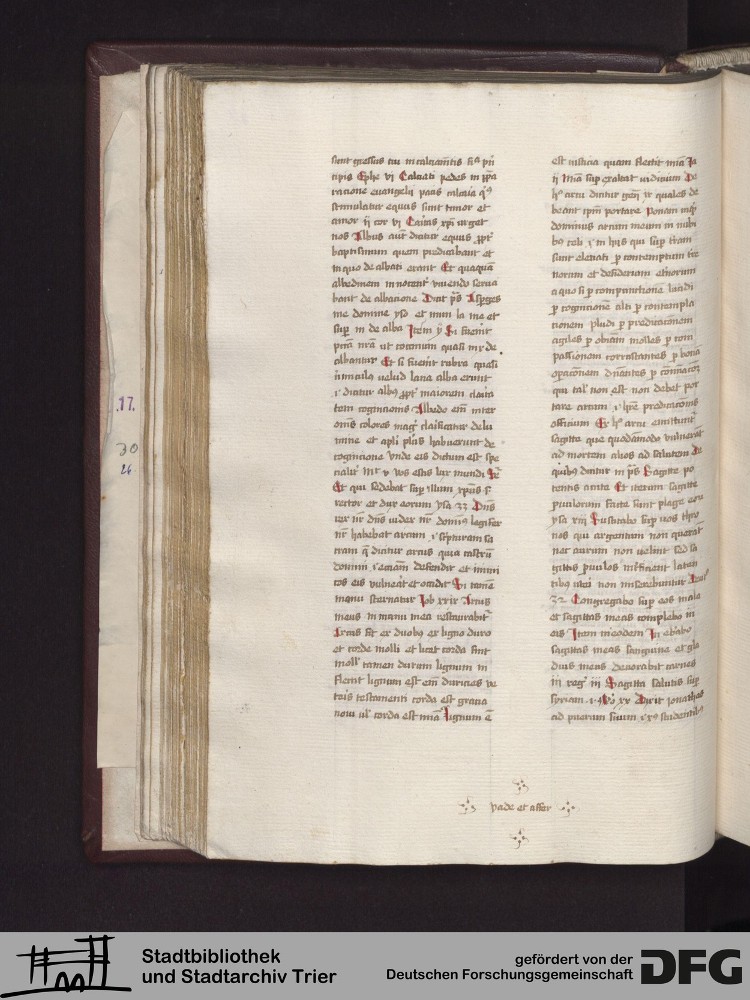 sunt gressus tui in calciamentis filia prin
cipis Ephe vi Calciati pedes in prepa
racione euangelii pacis calciata
stimulatur equus sunt timor et
amor ii cor vi Caritas xpi urget
nos Albus aut dicitur equus propter
baptismum quem predicabant et
in quo de albati erant Et quia quam
albedinem innocenter viuendo serua
bant de albacione Dicit ps Asperges
me domine ysopo et mun la me et
super ni de alba Item ysa Si fuerint
pcta nra ut coccinum quasi nix de
albantur Et si fuerint rubra quasi
vermiculus velud lana alba erunt
dicitur albus propter maiorem clarita
tem cognicionis Albedo enim inter
omnes colores magis clarificatur de lu
mine et apli plus habuerunt de
cognicione vnde eis dictum est spe
cialiter mt v vos estis lux mundi
Et qui sedebat super illum xpistus
rector et dux eorum ysa 33 Dns
rex nr dns iudex nr dominus legifer
nr habebat arcum scripturam sa
cram que dicitur arcus quia castrum
domini eciam defendit et inimi
cos eis vulnerat et occidit In
manu sternatur Iob xxix Arcus
meus in manu mea restaurabitur
Arcus fit ex duobus ex ligno duro
et corde molli et licet corda sint
moll tamen durum lignum in
flectit lignum est enim duricies ve
teris testamenti corda est gratia
noui vel corda est mia Lignum
est iusticia quam flectit mia Ia
ii Mia super exaltat iudicium De
hoc arcu dicitur gen ix quales de
beant ipsum portare Ponam inquit
dominus arcum meum in nubi
bus celi in hiis qui super terram
sunt eleuati per contemptum terre
norum et desiderium eternorum
a quo si per compunctione lucidi
per cognicionem alti per contempla
tionem pluuidi per predicationem
agiles per obediam molles per com
passionem corruscantes per bonam
operacionem
qui talis non est non debet por
tare arcum predicacionis
officium Ex hoc arcu emittuntur
sagitte que quodammodo vulnerant
ad mortem alios ad salutem De
quibus dicitur in ps Sagitte po
tentis acute Et iterum sagitte
paruulorum facte sunt plage eorum
ysa xiii Suscitabo super vos
nos qui argentum non querant
nec aurum non uelint sed sa
gittis paruulos interficient lacten
tibus uteri non miserebuntur
32 Congregabo super eos mala
et sagittas meas complebo in
eis Item in eodem Inebriabo
sagittas meas sanguine et gla
dius meus deuorabit carnes
iii reg iii Sagitta salutis super
syriam xx Dixit Jonathas
ad puerum suum studentibus
vade et affer
.17.
30
26
Stadtbibliothek
und Stadtarchiv Trier
gefördert von der
Deutschen Forschungsgemeinschaft
DFG